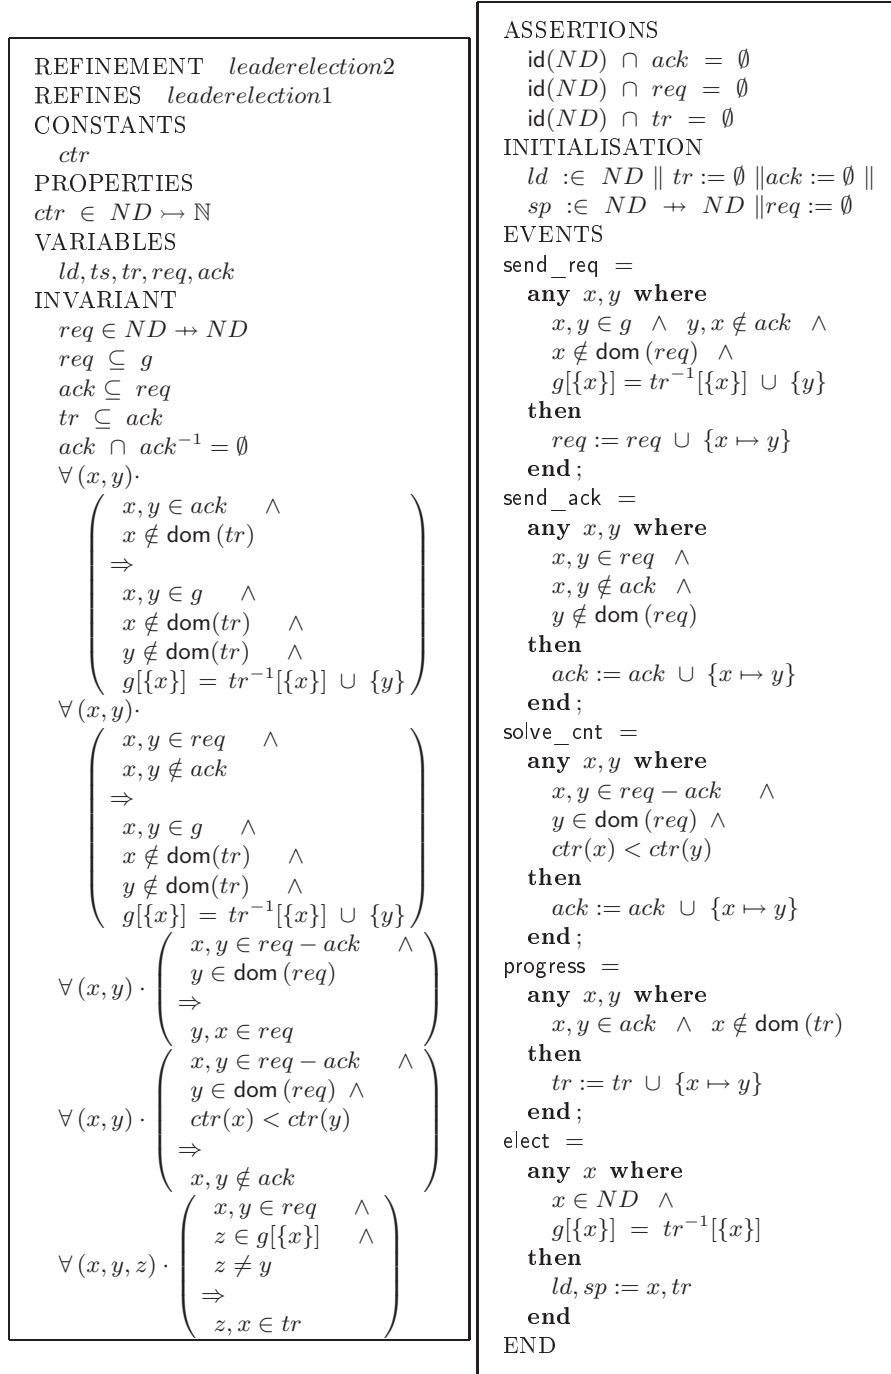 REFINEMENT leaderelection2
REFINES leaderelection1
CONSTANTS
ctr
PROPERTIES
ctr ∈ ND ↣ ℕ
VARIABLES
ld, ts, tr, req, ack
INVARIANT
req ∈ ND ⇸ ND
req ⊆ g
ack ⊆ req
tr ⊆ ack
ack ∩ ack⁻¹ = ∅
∀ (x, y)·
x, y ∈ ack ∧
x ∉ dom (tr)
⇒
x, y ∈ g ∧
x ∉ dom(tr) ∧
y ∉ dom(tr) ∧
g[{x}] = tr⁻¹[{x}] ∪ {y}
∀ (x, y)·
x, y ∈ req ∧
x, y ∉ ack
⇒
x, y ∈ g ∧
x ∉ dom(tr) ∧
y ∉ dom(tr) ∧
g[{x}] = tr⁻¹[{x}] ∪ {y}
∀ (x, y) ·
x, y ∈ req − ack ∧
y ∈ dom (req)
⇒
y, x ∈ req
∀ (x, y) ·
x, y ∈ req − ack ∧
y ∈ dom (req) ∧
ctr(x) < ctr(y)
⇒
x, y ∉ ack
∀ (x, y, z) ·
x, y ∈ req ∧
z ∈ g[{x}] ∧
z ≠ y
⇒
z, x ∈ tr
ASSERTIONS
id(ND) ∩ ack = ∅
id(ND) ∩ req = ∅
id(ND) ∩ tr = ∅
INITIALISATION
ld :∈ ND ∥ tr := ∅ ∥ack := ∅ ∥
sp :∈ ND ⇸ ND ∥req := ∅
EVENTS
send_req =
any x, y where
x, y ∈ g ∧ y, x ∉ ack ∧
x ∉ dom (req) ∧
g[{x}] = tr⁻¹[{x}] ∪ {y}
then
req := req ∪ {x ↦ y}
end ;
send_ack =
any x, y where
x, y ∈ req ∧
x, y ∉ ack ∧
y ∉ dom (req)
then
ack := ack ∪ {x ↦ y}
end ;
solve_cnt =
any x, y where
x, y ∈ req − ack ∧
y ∈ dom (req) ∧
ctr(x) < ctr(y)
then
ack := ack ∪ {x ↦ y}
end ;
progress =
any x, y where
x, y ∈ ack ∧ x ∉ dom (tr)
then
tr := tr ∪ {x ↦ y}
end ;
elect =
any x where
x ∈ ND ∧
g[{x}] = tr⁻¹[{x}]
then
ld, sp := x, tr
end
END